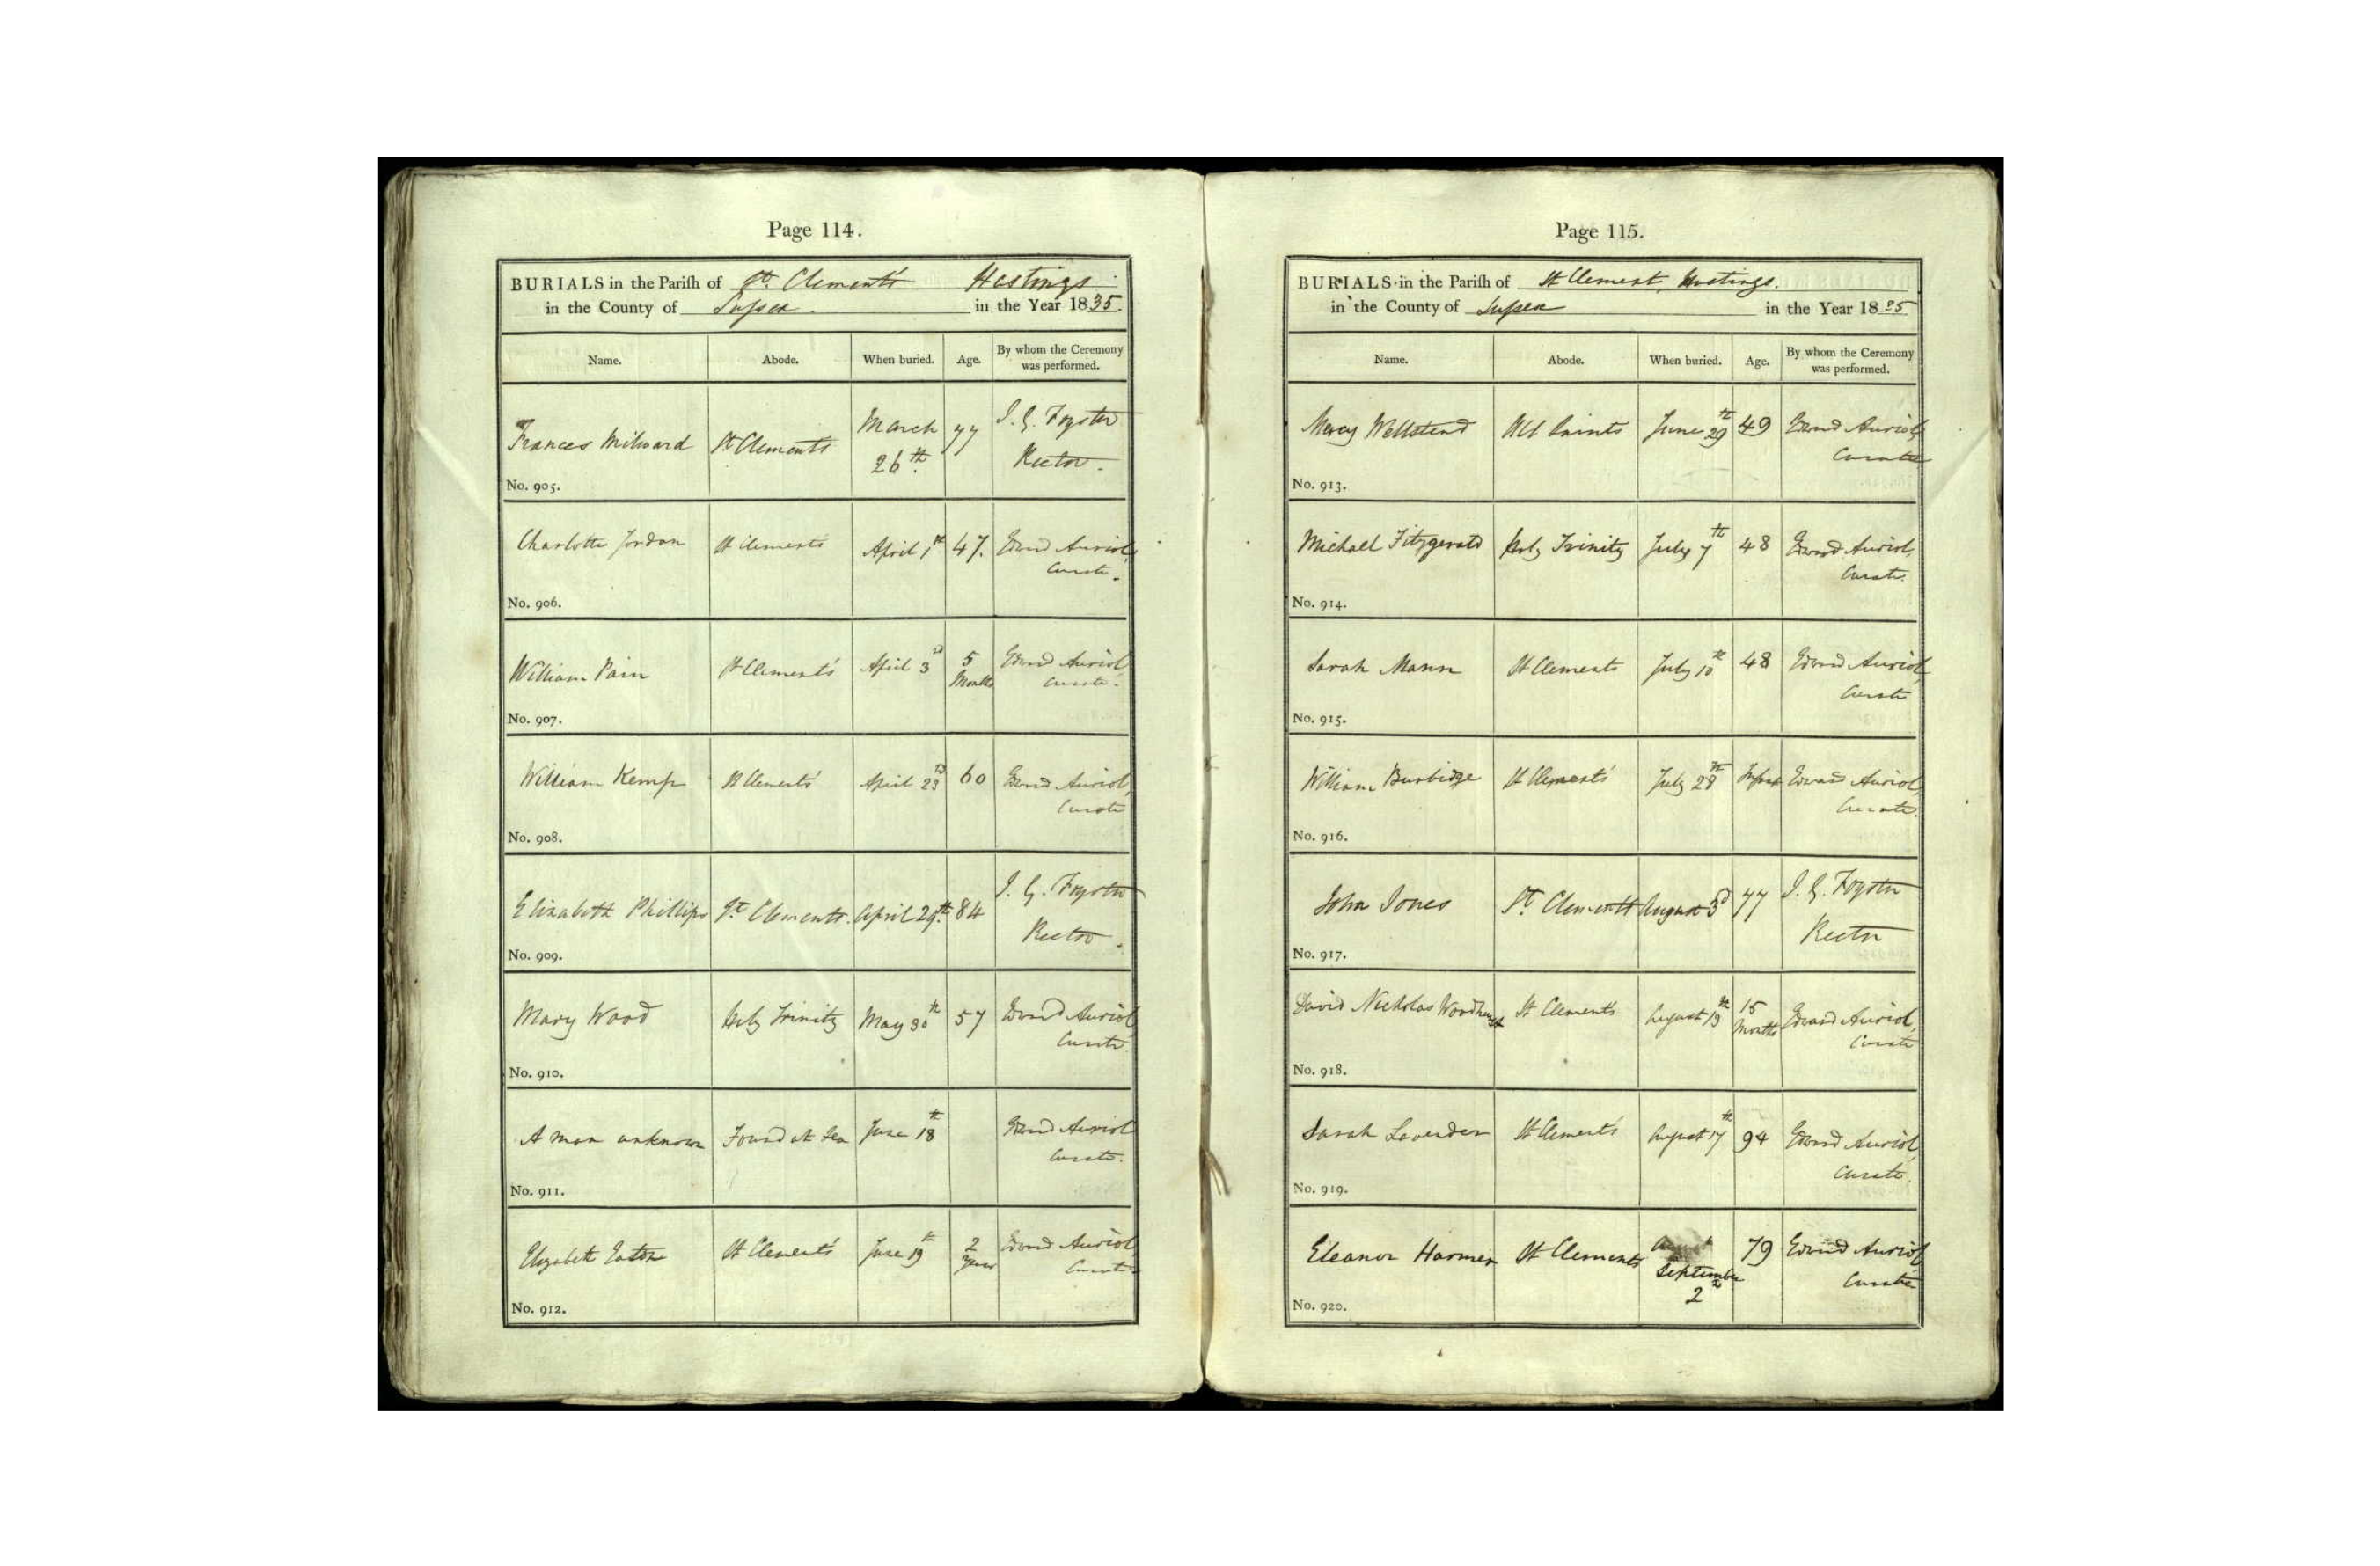 Page 114.
BURIALS in the Parish of St. Clement's Hastings
in the County of Sussex. in the Year 1835.
Name. Abode. When buried. Age. By whom the Ceremony was performed.
Frances Milward St Clements March 26th. 77 J. G. Foyster Rector.
No. 905.
Charlotte Jordan St Clements April 1st 47. Edward Auriol, Curate.
No. 906.
William Pain St Clement's April 3rd 5 Months Edward Auriol, Curate.
No. 907.
William Kemp St Clements' April 23rd 60 Edward Auriol, Curate
No. 908.
Elizabeth Phillips St. Clements. April 29th. 84 J. G. Foyster Rector.
No. 909.
Mary Wood Holy Trinity May 30th 57 Edward Auriol, Curate
No. 910.
A man unknown Found at Sea June 18th Edward Auriol Curate.
No. 911.
Elizabeth Eaton St Clement's June 19th 2 years Edward Auriol, Curate.
No. 912.
Page 115.
BURIALS in the Parish of St Clement, Hastings.
in the County of Sussex in the Year 1835
Name. Abode. When buried. Age. By whom the Ceremony was performed.
Mercy Wellstend All Saints June 29th 49 Edward Auriol, Curate
No. 913.
Michael Fitzgerald Holy Trinity July 7th 48 Edward Auriol, Curate.
No. 914.
Sarah Mann St Clements July 10th 48 Edward Auriol, Curate
No. 915.
William Burbidge St Clement's July 28th Infant Edward Auriol, Curate.
No. 916.
John Jones St. Clements August 3d 77 J. G. Foyster Rector
No. 917.
David Nicholas Woodhurst St Clements August 13th 15 Months Edward Auriol, Curate
No. 918.
Sarah Lavender St Clement's August 17th 94 Edward Auriol, Curate.
No. 919.
Eleanor Harmer St Clements September 2 79 Edward Auriol Curate
No. 920.